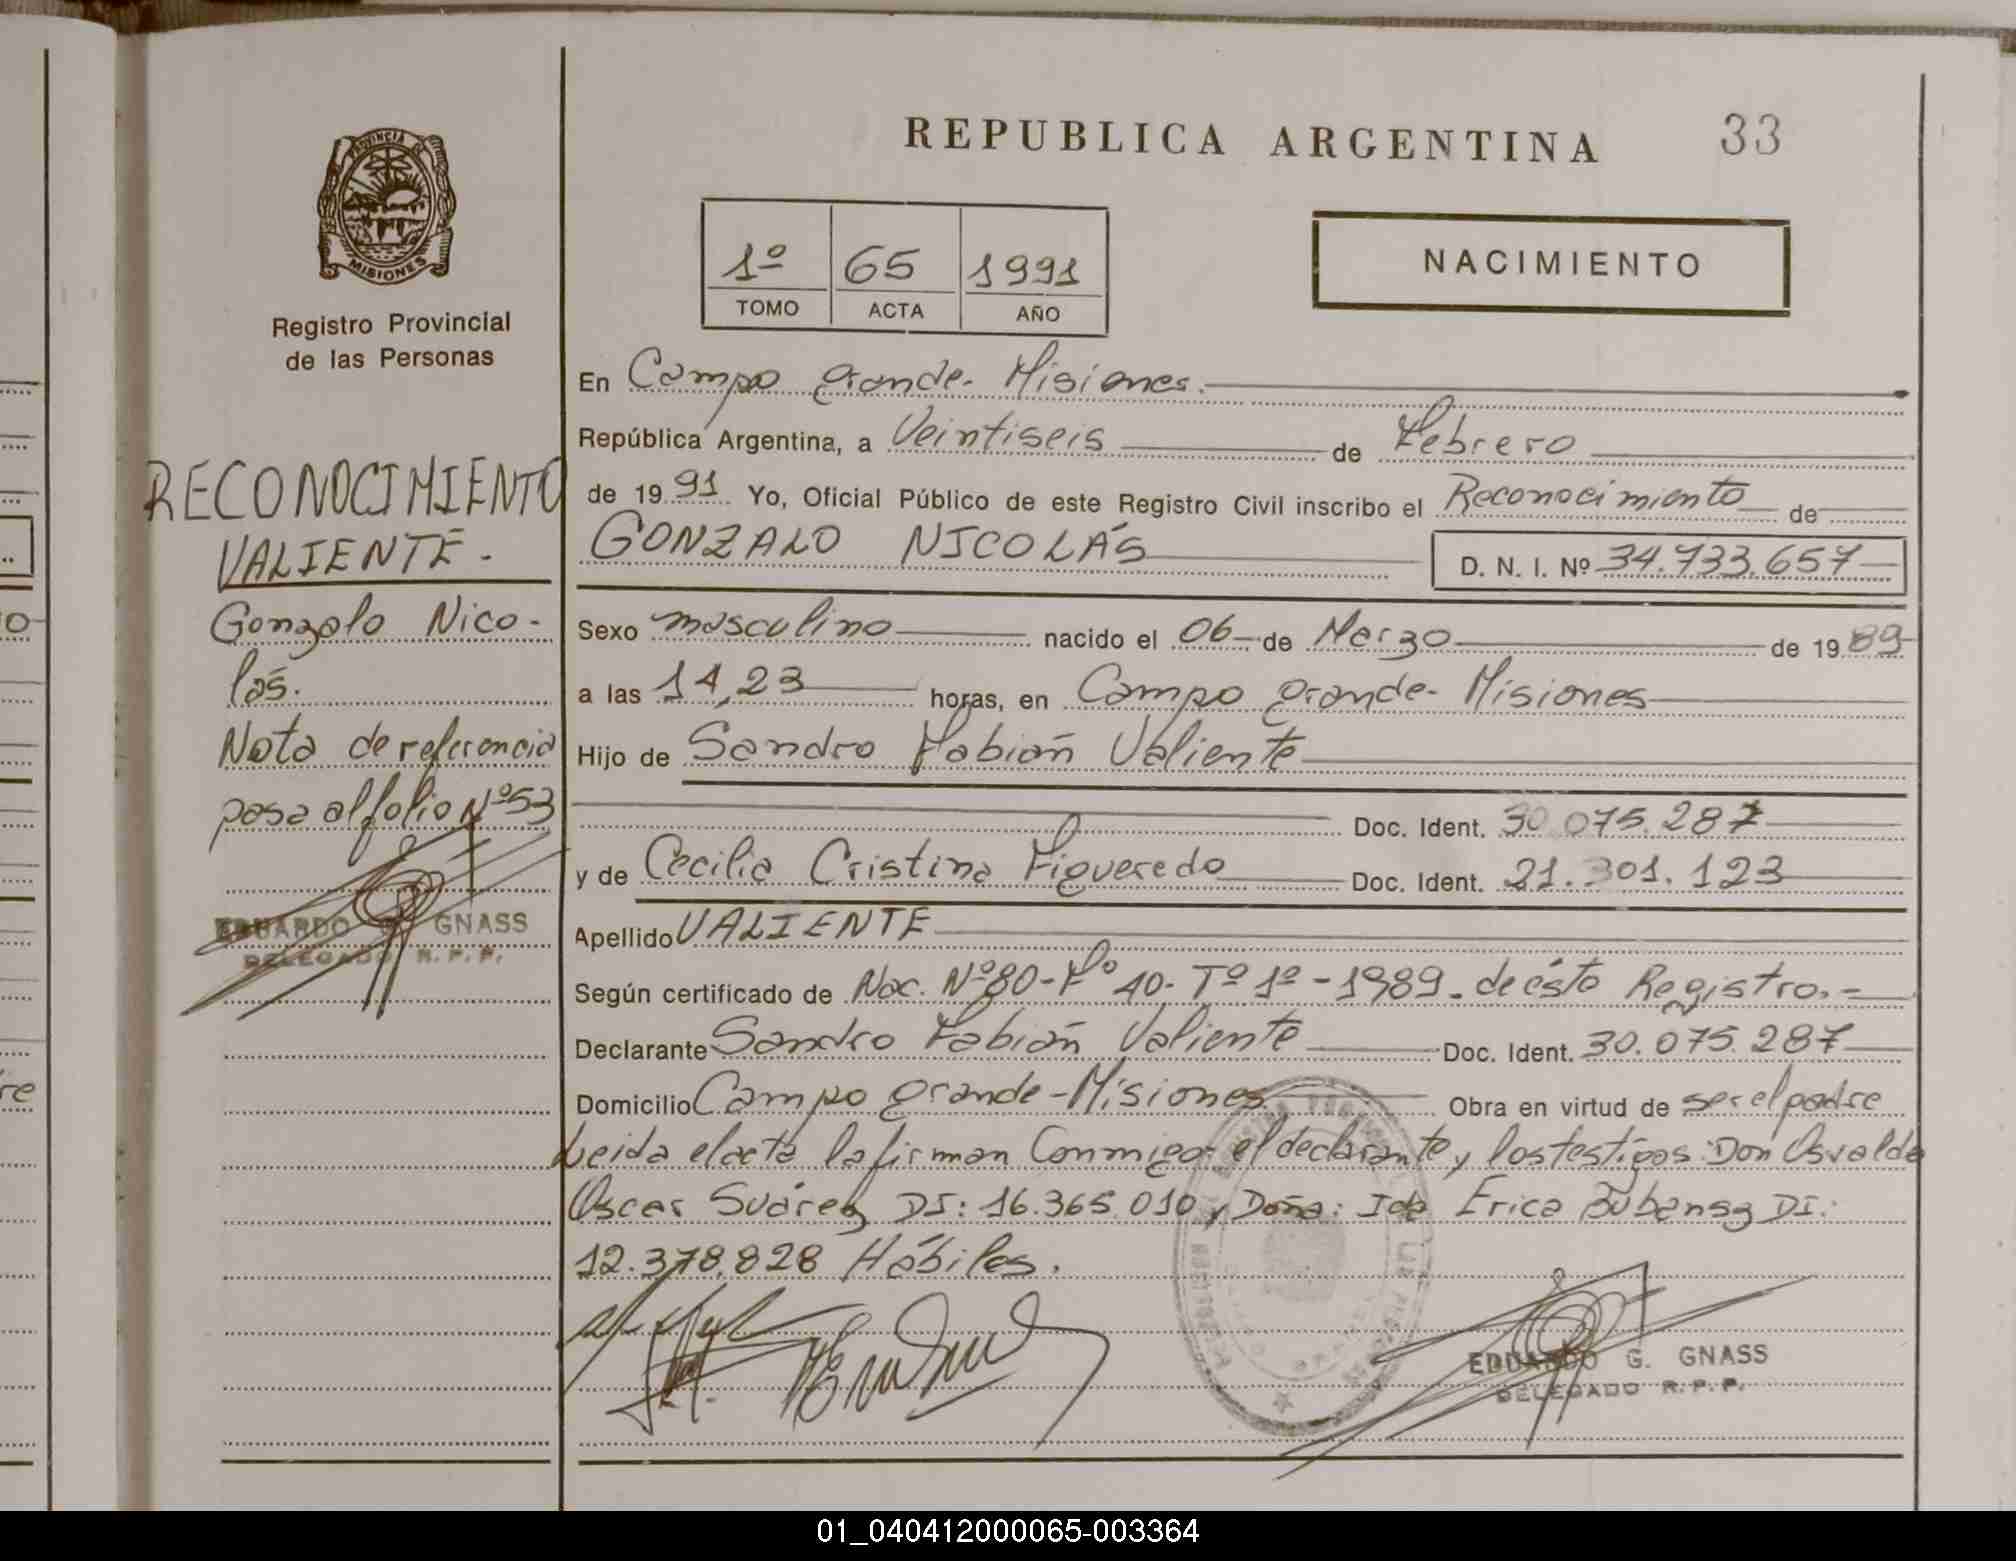 REPUBLICA ARGENTINA 33
PROVINCIA DE
MISIONES
Registro Provincial
de las Personas
1º 65 1991
TOMO ACTA AÑO
NACIMIENTO
RECONOCIMIENTO
VALIENTE.-
Gonzalo Nico-
lás.
Nota de referencia
pasa al folio Nº53
EDUARDO G. GNASS
DELEGADO R.P.P.
En Campo grande- Misiones.
República Argentina, a Veintiseis de Febrero
de 1991 Yo, Oficial Público de este Registro Civil inscribo el Reconocimiento de
GONZALO NICOLÁS D. N. I. Nº 34.733.657
Sexo masculino nacido el 06 de Marzo de 1989
a las 14,23 horas, en Campo grande- Misiones
Hijo de Sandro Fabián Valiente
Doc. Ident. 30.075.287
y de Cecilia Cristina Figueredo Doc. Ident. 21.301.123
Apellido VALIENTE
Según certificado de Nac. Nº80-Fº 40- Tº 1º-1989. de ésto Registro.-
Declarante Sandro Fabián Valiente Doc. Ident. 30.075.287
Domicilio Campo grande-Misiones Obra en virtud de ser el padre
Leida el acta la firman Conmigo el declarante y los testigos: Don Osvaldo
Oscar Suárez DI: 16.365.010 y Doña: Ida Erica DI:
12.378.828 Hábiles.
EDUARDO G. GNASS
DELEGADO R.P.P.
re
01_040412000065-003364